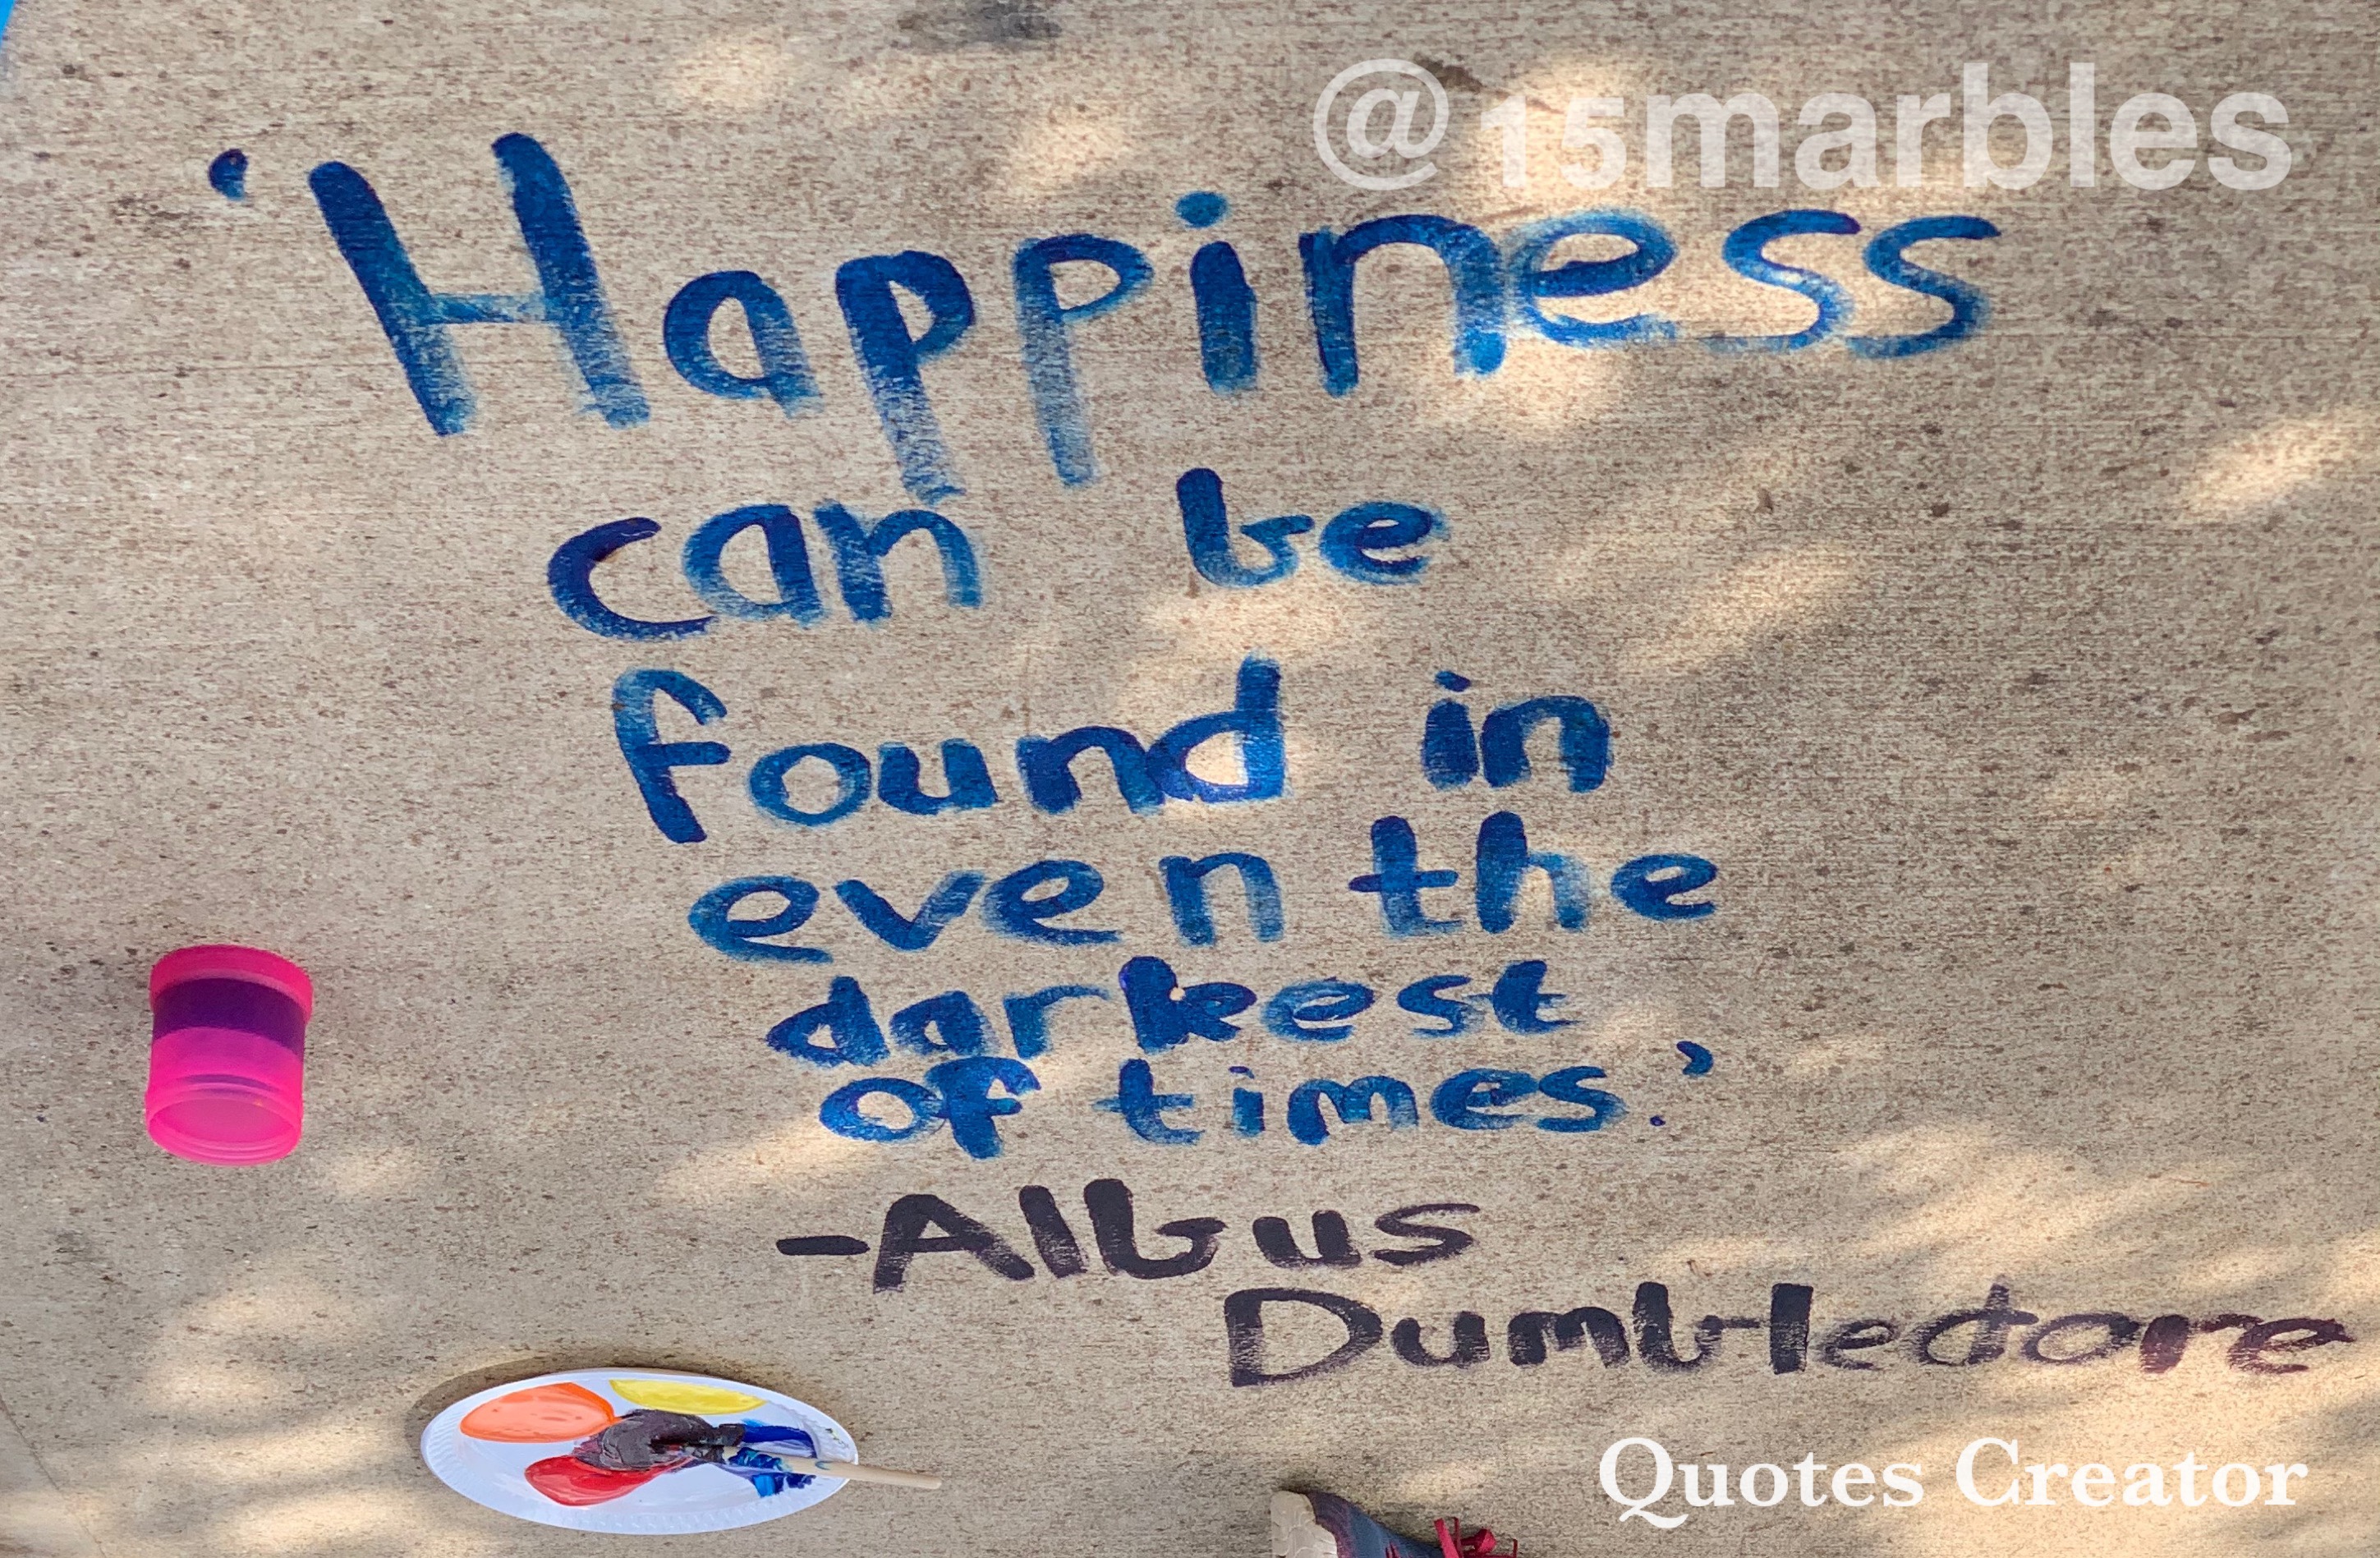 @15marbles
'Happiness
can be
found in
even the
darkest
of times.'
-Albus
Dumbledore
Quotes Creator